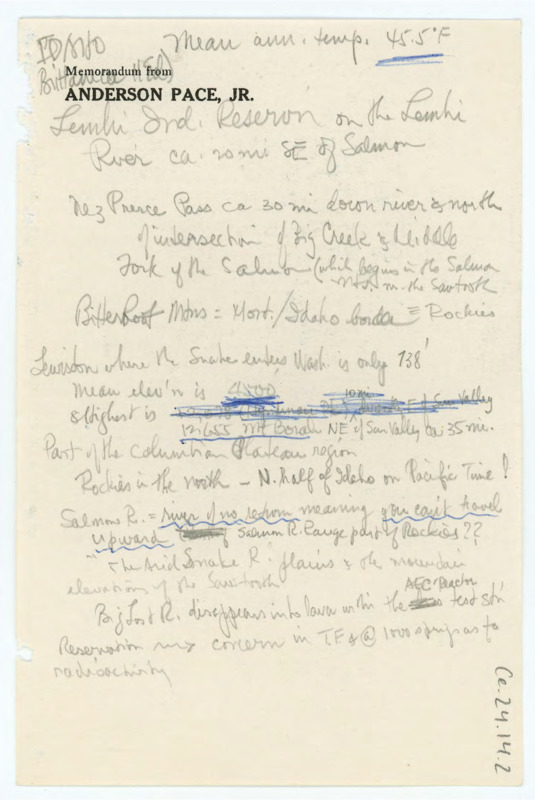 IDAHO Mean ann. temp. 45.5°F
Brittanica
Memorandum from
ANDERSON PACE, JR.
Lemhi Ind. Reserv'n on the Lemhi
River ca. 20 mi SE of Salmon
Nez Pierce Pass ca 30 mi down river & north
of intersection of Big Creek & Middle
Fork of the Salmon (which begins in the Salmon
Mts. in the Sawtooth
BitterRoot Mtns = Mont./Idaho border ≡ Rockies
Lewiston where the Snake enters Wash. is only 738'
Mean elev'n is 4500
& Highest is 10 mi
12,655 Mt Borah NE of Sun Valley ca 35 mi.
Part of the Columbian Plateau region
Rockies in the north - N. half of Idaho on Pacific Time!
Salmon R. = river of no return meaning you can't travel
upward Salmon R. Range part of Rockies??
"The Arid Snake R. plains & the mountain
elevations of the Sawtooth
Big Lost R. disappears into lava within the AEC Reactor test st'n
Reservation concern in T.F. @ 1000 springs as to
radioactivity
Ce.24.14.2